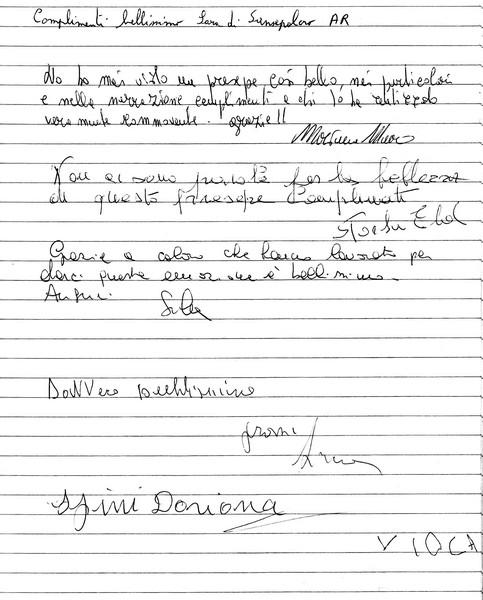 Complimenti bellissimo Sara di Sansepolcro AR
No ho mai visto un presepe così bello, nei particolari
e nella narrazione complimenti a chi lo ha realizzato
veramente commovente. grazie!!
Non ci sono parole per la bellezza
di questo presepe Complimenti
Grazie a coloro che hanno lavorato per
darci questa emozione è bellissimo
Auguri.
Davvero bellissimo
Sfini Doriana
VIOLA